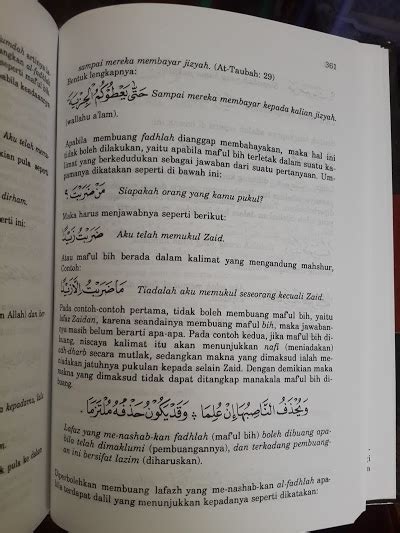 361
sampai mereka membayar jizyah. (At-Taubah: 29)
Bentuk lengkapnya:
حَتَّى يُعْطُوكُمُ الْجِزْيَةَ Sampai mereka membayar kepada kalian jizyah.
(wallahu a'lam).
Apabila membuang fadhlah dianggap membahayakan, maka hal ini
tidak boleh dilakukan, yaitu apabila maf'ul bih terletak dalam suatu ka-
limat yang berkedudukan sebagai jawaban dari suatu pertanyaan. Um-
pamanya dikatakan seperti di bawah ini:
مَنْ ضَرَبْتَ ؟ Siapakah orang yang kamu pukul?
Maka harus menjawabnya seperti berikut:
ضَرَبْتُ زَيْدًا Aku telah memukul Zaid.
Atau maf'ul bih berada dalam kalimat yang mengandung mahshur,
Contoh:
مَا ضَرَبْتُ إِلَّا زَيْدًا Tiadalah aku memukul seseorang kecuali Zaid.
Pada contoh-contoh pertama, tidak boleh membuang maf'ul bih, yaitu
lafaz Zaidan, karena seandainya membuang maf'ul bih, maka jawaban-
nya masih belum berarti apa-apa. Pada contoh kedua, jika maf'ul bih di-
buang, niscaya kalimat itu akan menunjukkan nafi (meniadakan)
adh-dharb secara mutlak, sedangkan makna yang dimaksud ialah me-
niadakan jatuhnya pukulan kepada selain Zaid. Dengan demikian maka
makna yang dimaksud tidak dapat ditangkap manakala maf'ul bih di-
buang.
وَيُحْذَفُ النَّاصِبُهَا إِنْ عُلِمَا ۞ وَقَدْ يَكُونُ حَذْفُهُ مُلْتَزَمَا
Lafaz yang me-nashab-kan fadhlah (maf'ul bih) boleh dibuang apa-
bila telah dimaklumi (pembuangannya), dan terkadang pembuang-
an ini bersifat lazim (diharuskan).
Diperbolehkan membuang lafazh yang me-nashab-kan al-fadhlah apa-
bila terdapat dalil yang menunjukkan kepadanya seperti dikatakan: